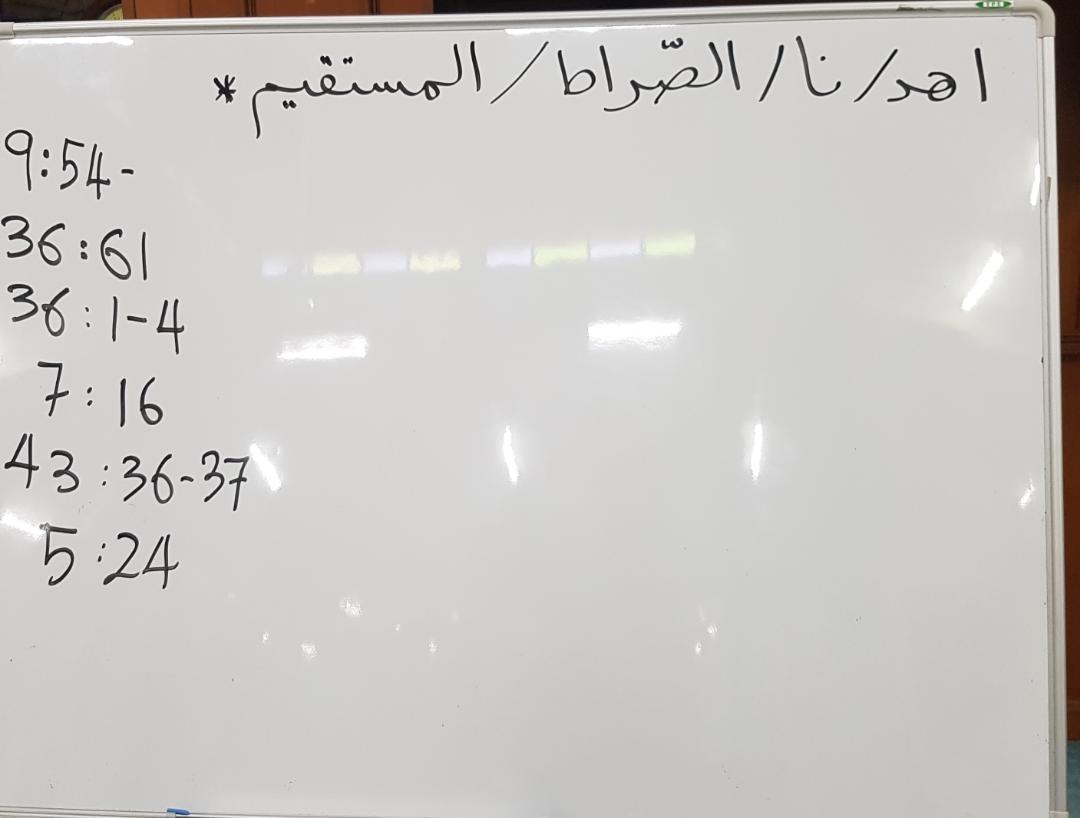 اهد/نا/الصّراط/المستقيم*
9:54-
36:61
36:1-4
7:16
43:36-37
5:24